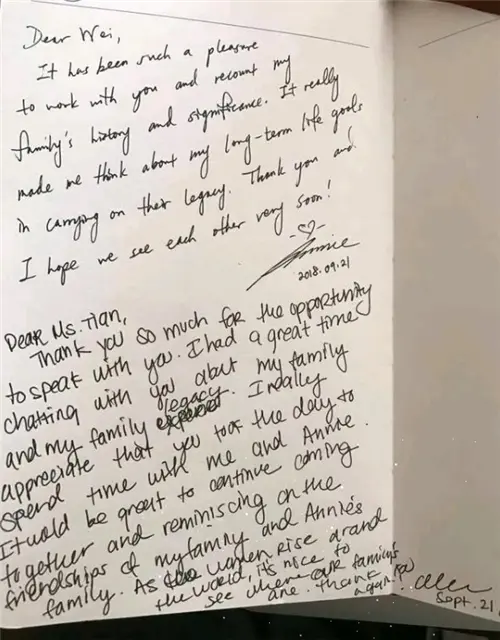 Dear Wei,
It has been such a pleasure
to work with you and recount my
family's history and significance. It really
made me think about my long-term life goals
in carrying on their legacy. Thank you and
I hope we see each other very soon!
Annie
2018.09.21
Dear Ms. Tian,
Thank you so much for the opportunity
to speak with you. I had a great time
chatting with you about my family
and my family legacy. I really
appreciate that you took the day to
spend time with me and Annie.
It would be great to continue coming
together and reminiscing on the
friendships of my family and Annie's
family. As women rise around
the world, it's nice to
see where our family's
are. Thank
again
Sept. 21